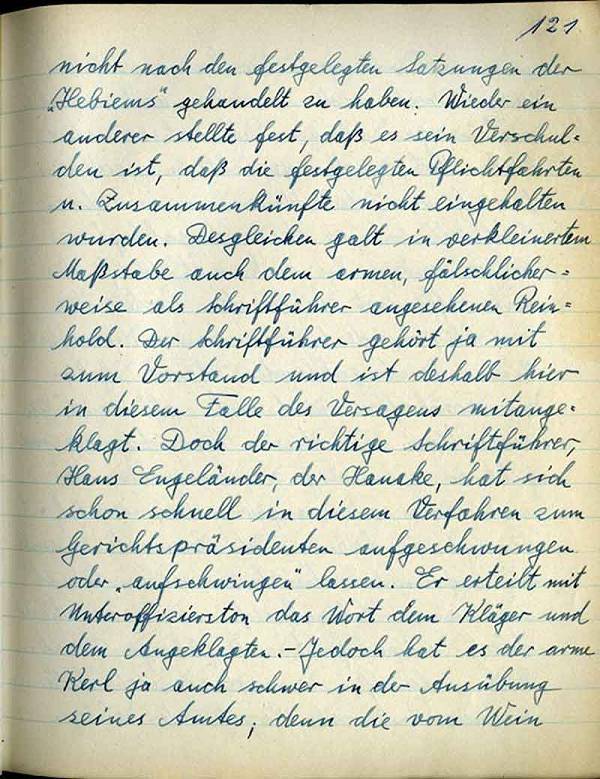 121
nicht nach den festgelegten Satzungen der
„Hebiems" gehandelt zu haben. Wieder ein
anderer stellte fest, daß es sein Verschul=
den ist, daß die festgelegten Pflichtfahrten
u. Zusammenkünfte nicht eingehalten
wurden. Desgleichen galt in verkleinertem
Maßstabe auch dem armen, fälschlicher=
weise als Schriftführer angesehenen Rein=
hold. Der Schriftführer gehört ja mit
zum Vorstand und ist deshalb hier
in diesem Falle des Versagens mitange=
klagt. Doch der richtige Schriftführer,
Hans Engeländer, der Hanake, hat sich
schon schnell in diesem Verfahren zum
Gerichtspräsidenten aufgeschwungen
oder „aufschwingen" lassen. Er erteilt mit
Unteroffizierston das Wort dem Kläger und
dem Angeklagten. – Jedoch hat es der arme
Kerl ja auch schwer in der Ausübung
seines Amtes; denn die vom Wein